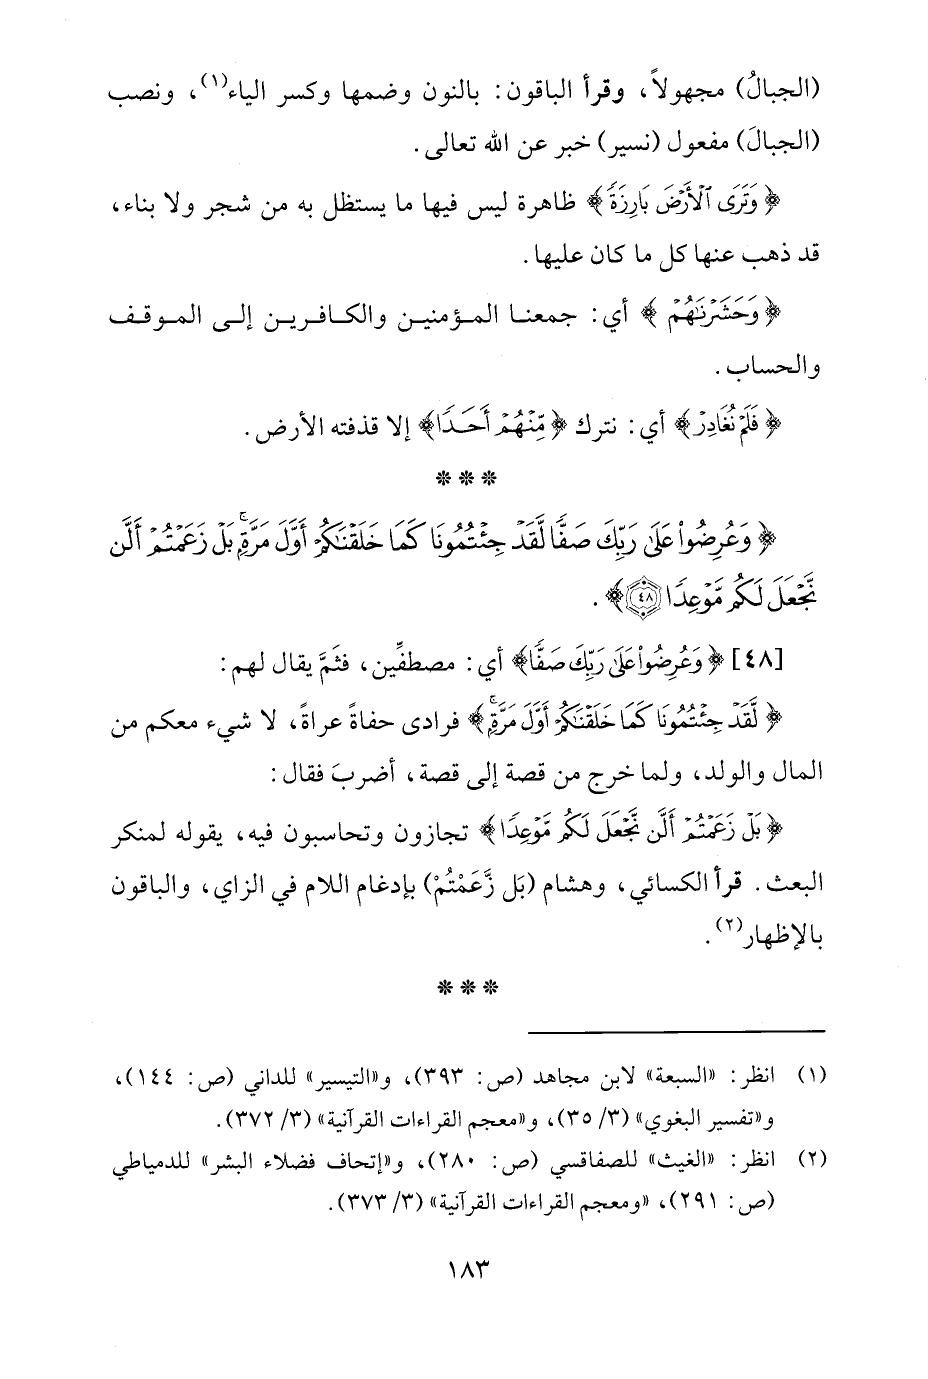 (الجبالُ) مجهولاً، وقرأ الباقون: بالنون وضمها وكسر الياء(١)، ونصب
(الجبالَ) مفعول (نسير) خبر عن الله تعالى.
﴿وَتَرَى ٱلْأَرْضَ بَارِزَةً﴾ ظاهرة ليس فيها ما يستظل به من شجر ولا بناء،
قد ذهب عنها كل ما كان عليها.
﴿وَحَشَرْنَٰهُمْ﴾ أي: جمعنا المؤمنين والكافرين إلى الموقف
والحساب.
﴿فَلَمْ نُغَادِرْ﴾ أي: نترك ﴿مِنْهُمْ أَحَدًا﴾ إلا قذفته الأرض.
* * *
﴿وَعُرِضُوا۟ عَلَىٰ رَبِّكَ صَفًّا لَّقَدْ جِئْتُمُونَا كَمَا خَلَقْنَٰكُمْ أَوَّلَ مَرَّةٍۭ ۚ بَلْ زَعَمْتُمْ أَلَّن
نَّجْعَلَ لَكُم مَّوْعِدًا ٤٨﴾.
[٤٨] ﴿وَعُرِضُوا۟ عَلَىٰ رَبِّكَ صَفًّا﴾ أي: مصطفِّين، فثَمَّ يقال لهم:
﴿لَّقَدْ جِئْتُمُونَا كَمَا خَلَقْنَٰكُمْ أَوَّلَ مَرَّةٍۭ ۚ﴾ فرادى حفاةً عراةً، لا شيء معكم من
المال والولد، ولما خرج من قصة إلى قصة، أضربَ فقال:
﴿بَلْ زَعَمْتُمْ أَلَّن نَّجْعَلَ لَكُم مَّوْعِدًا﴾ تجازون وتحاسبون فيه، يقوله لمنكر
البعث. قرأ الكسائي، وهشام (بَل زَّعَمْتُمْ) بإدغام اللام في الزاي، والباقون
بالإظهار(٢).
* * *
(١) انظر: «السبعة» لابن مجاهد (ص: ٣٩٣)، و«التيسير» للداني (ص: ١٤٤)،
و«تفسير البغوي» (٣/ ٣٥)، و«معجم القراءات القرآنية» (٣/ ٣٧٢).
(٢) انظر: «الغيث» للصفاقسي (ص: ٢٨٠)، و«إتحاف فضلاء البشر» للدمياطي
(ص: ٢٩١)، «ومعجم القراءات القرآنية» (٣/ ٣٧٣).
١٨٣